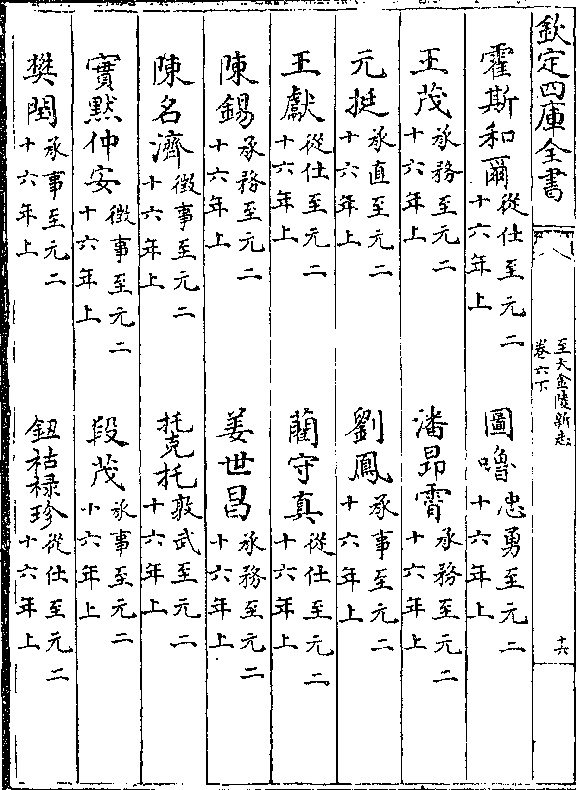 欽定四庫全書
至大金陵新志
卷六下
十六
霍斯和爾從仕至元二十六年上
圖嚕忠勇至元二十六年上
王茂承務至元二十六年上
潘昻霄承務至元二十六年上
元挺承直至元二十六年上
劉鳳承事至元二十六年上
王獻從仕至元二十六年上
藺守真從仕至元二十六年上
陳錫承務至元二十六年上
姜世昌承務至元二十六年上
陳名濟徴事至元二十六年上
托克托敦武至元二十六年上
竇黙仲安徴事至元二十六年上
段茂承事至元二十六年上
樊閏承事至元二十六年上
鈕祜禄珍從仕至元二十六年上